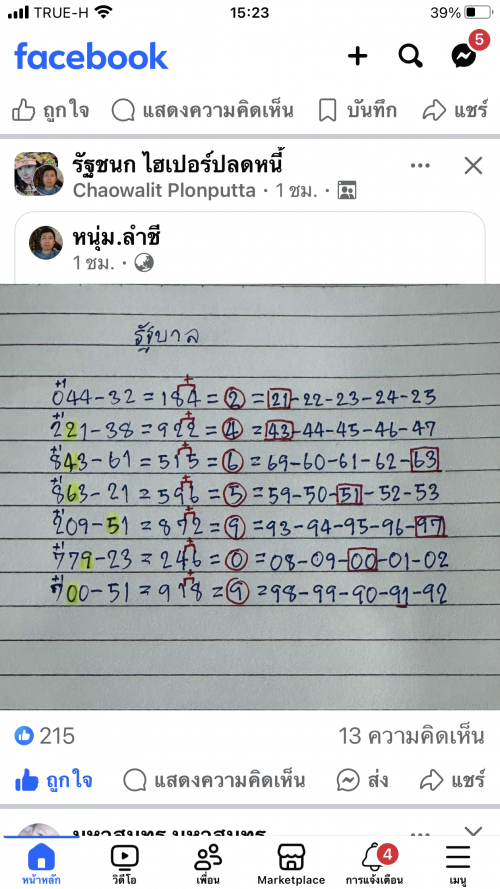 TRUE-H 15:23 39%
facebook 5
ถูกใจ แสดงความคิดเห็น บันทึก แชร์
รัฐชนก ไฮเปอร์ปลดหนี้
Chaowalit Plonputta · 1 ชม. ·
หนุ่ม.ลำชี
1 ชม. ·
รัฐบาล
+1 +
044-32 = 184 = 2 = 21-22-23-24-25
+1 +
221-38 = 922 = 4 = 43-44-45-46-47
+1 +
843-61 = 515 = 6 = 69-60-61-62-63
+1 +
863-21 = 596 = 5 = 59-50-51-52-53
+1 +
209-51 = 872 = 9 = 93-94-95-96-97
+1 +
779-23 = 246 = 0 = 08-09-00-01-02
+1 +
700-51 = 918 = 9 = 98-99-90-91-92
215 13 ความคิดเห็น
ถูกใจ แสดงความคิดเห็น ส่ง แชร์
มหาสมุทร มหาสมุทร
4
หน้าหลัก วิดีโอ เพื่อน Marketplace การแจ้งเตือน เมนู